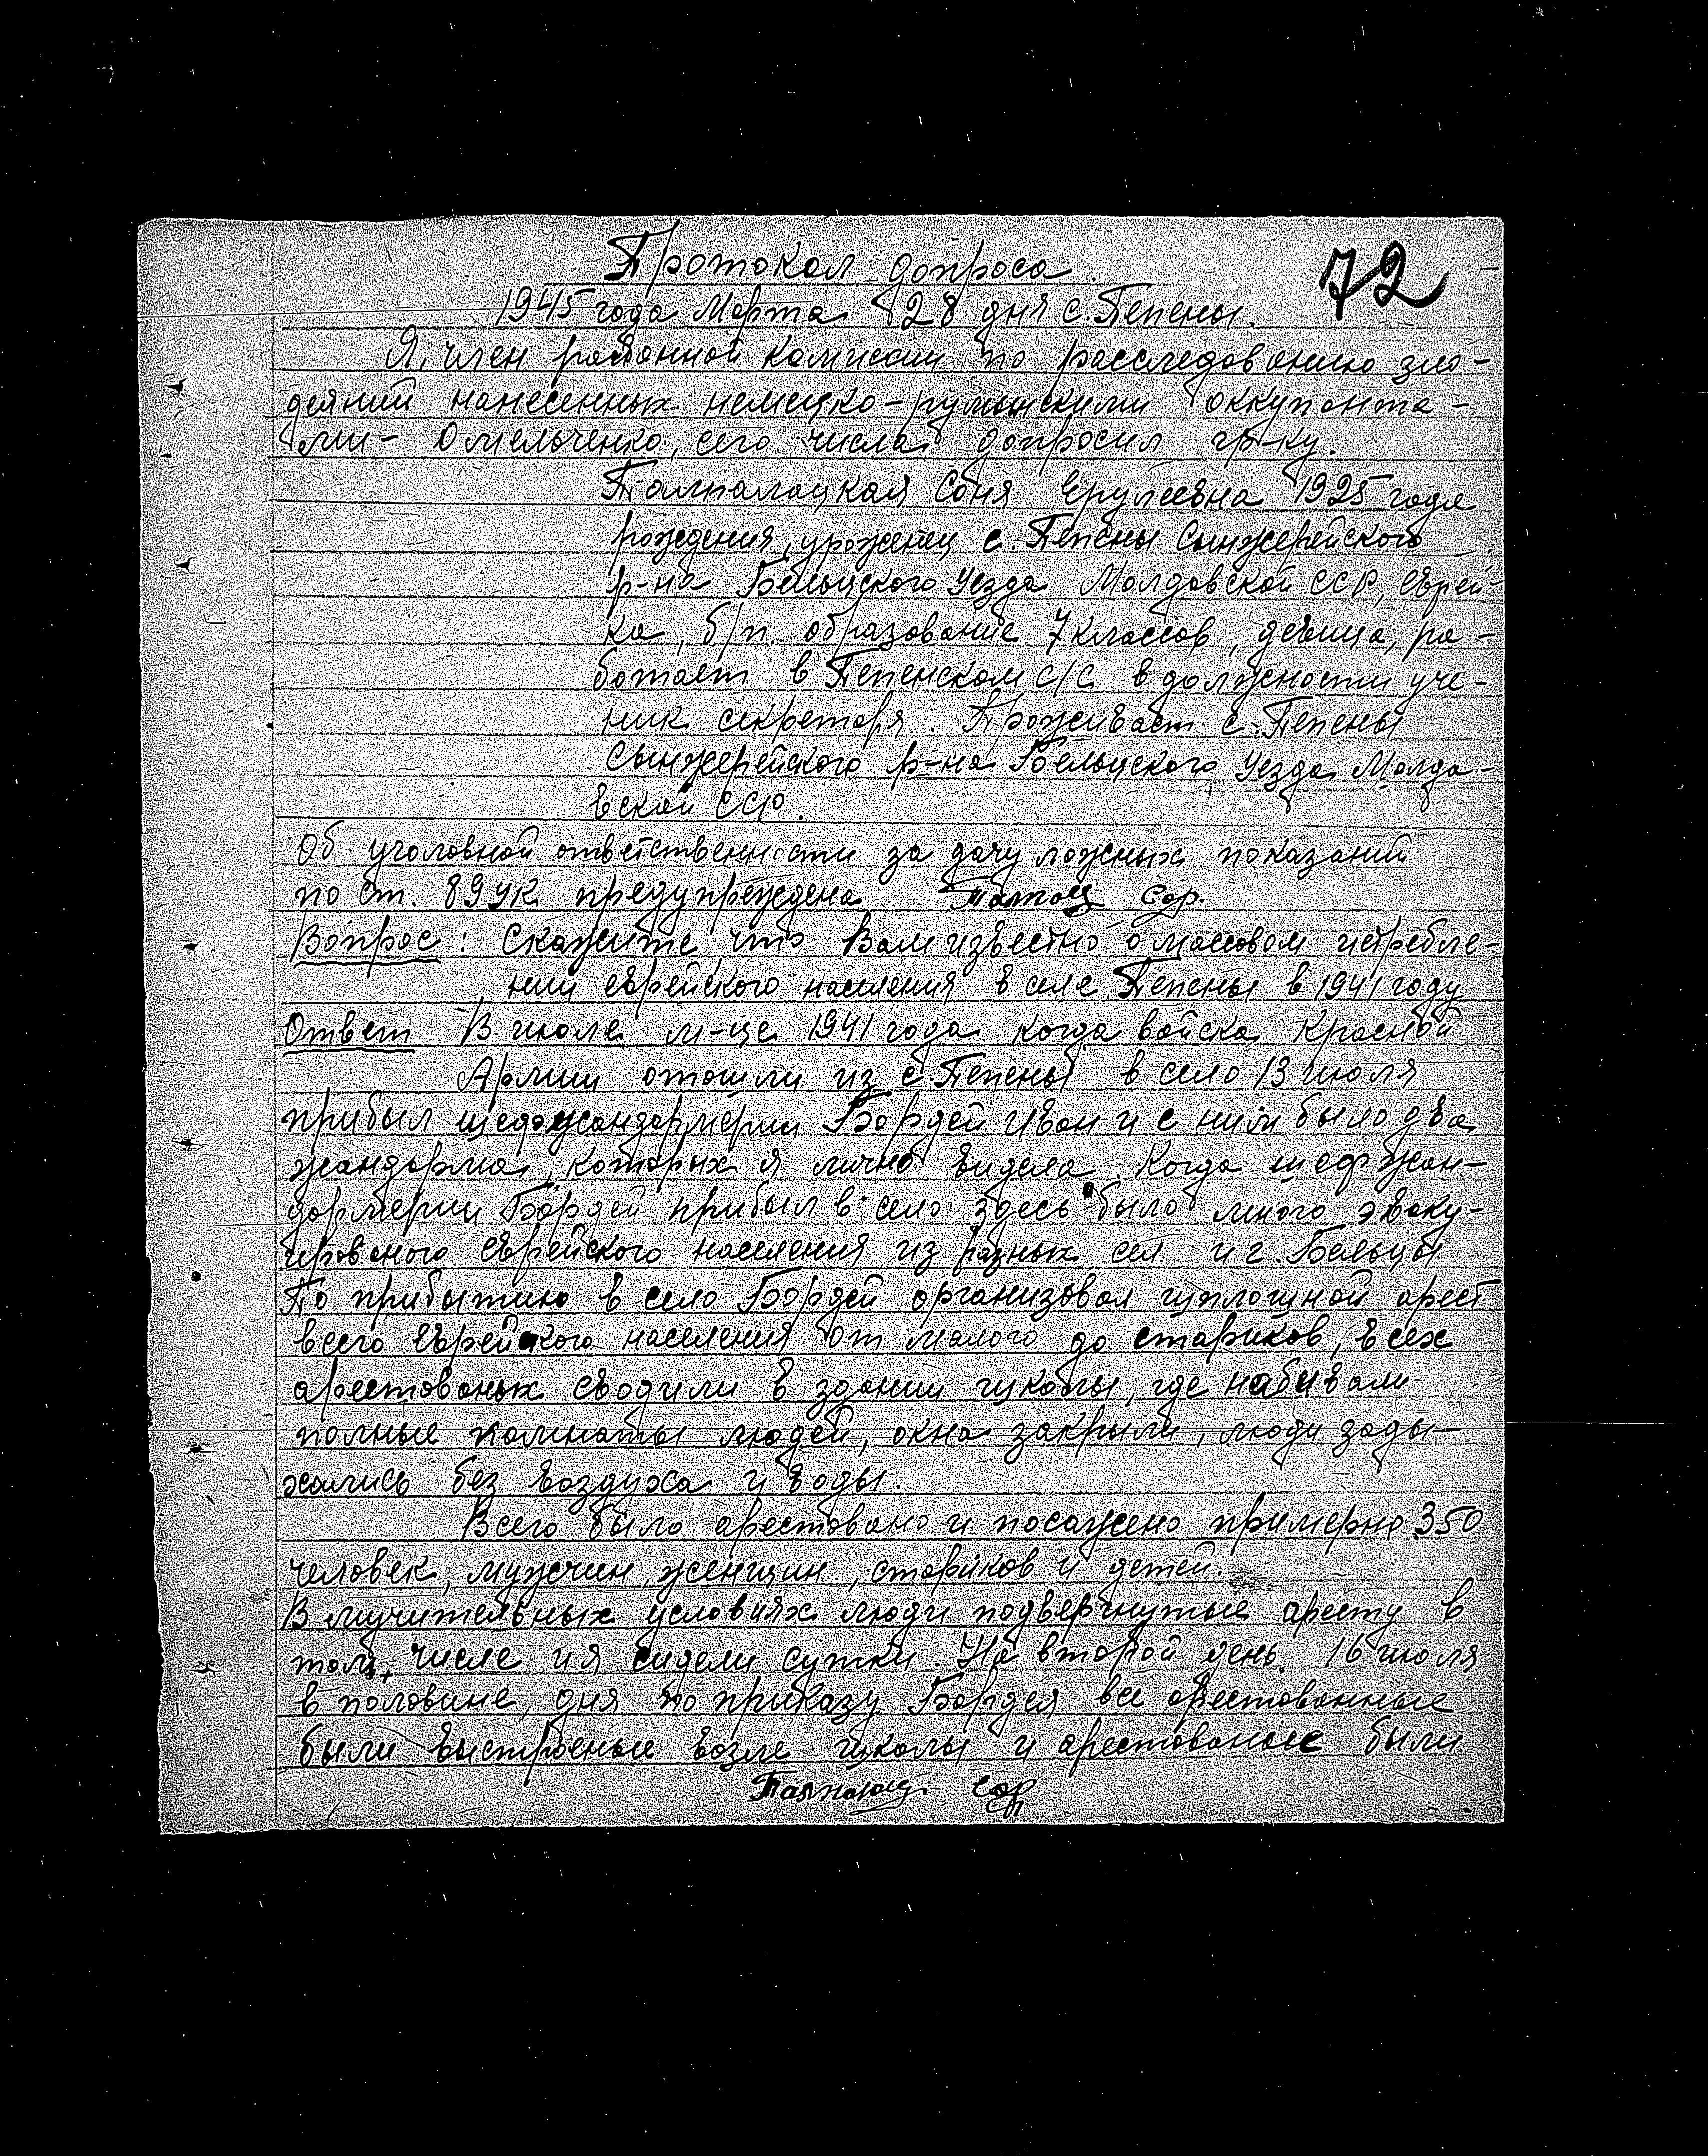 72
Протокол допроса
1945 года Марта 28 дня с. Пепены.
Я, член районной комиссии по расследованию зло-
деяний нанесенных немецко-румынскими оккупанта-
ми - Омельченко, сего числа допросил гр-ку.
Соня 1925 года
рождения, уроженец с. Пепены Сынжерейского
р-на Бельцского Уезда Молдовской ССР, еврей-
ка, б/п образование 7 классов, девица, ра-
ботает в Пепенском с/с в должности уче-
ник секретаря. Проживает с. Пепены
Сынжерейского р-на Бельцского Уезда Молда-
вской ССР.
Об уголовной ответственности за дачу ложных показаний
по ст. 89 УК предупреждена
Вопрос: Скажите, что Вам известно о массовом истребле-
нии еврейского населения в селе Пепены в 1941 году
Ответ В июле м-це 1941 года когда войска Красной
Армии отошли из с. Пепены в село 13 июля
прибыл шефжандармерии Бордей Иван и с ним было два
жандарма, которых я лично видела. Когда шеф жан-
дармерии Бордей прибыл в село здесь было много эваку-
ированого еврейского населения из разных сел и г. Бельцы
По прибытию в село Бордей организовал сплошной арест
всего еврейского населения от малого до стариков, всех
арестованых сводили в здании школы, где набивали
полные комнаты людей, окна закрыли, люди зады-
хались без воздуха и воды.
Всего было арестовано и посажено примерно 350
человек, мужчин, женщин, стариков и детей.
В мучительных условиях люди подвергнутые аресту в
том числе и я сидели сутки. На второй день 16 июля
в половине дня по приказу Бордея все арестованные
были выстроеные возле школы и арестованые были